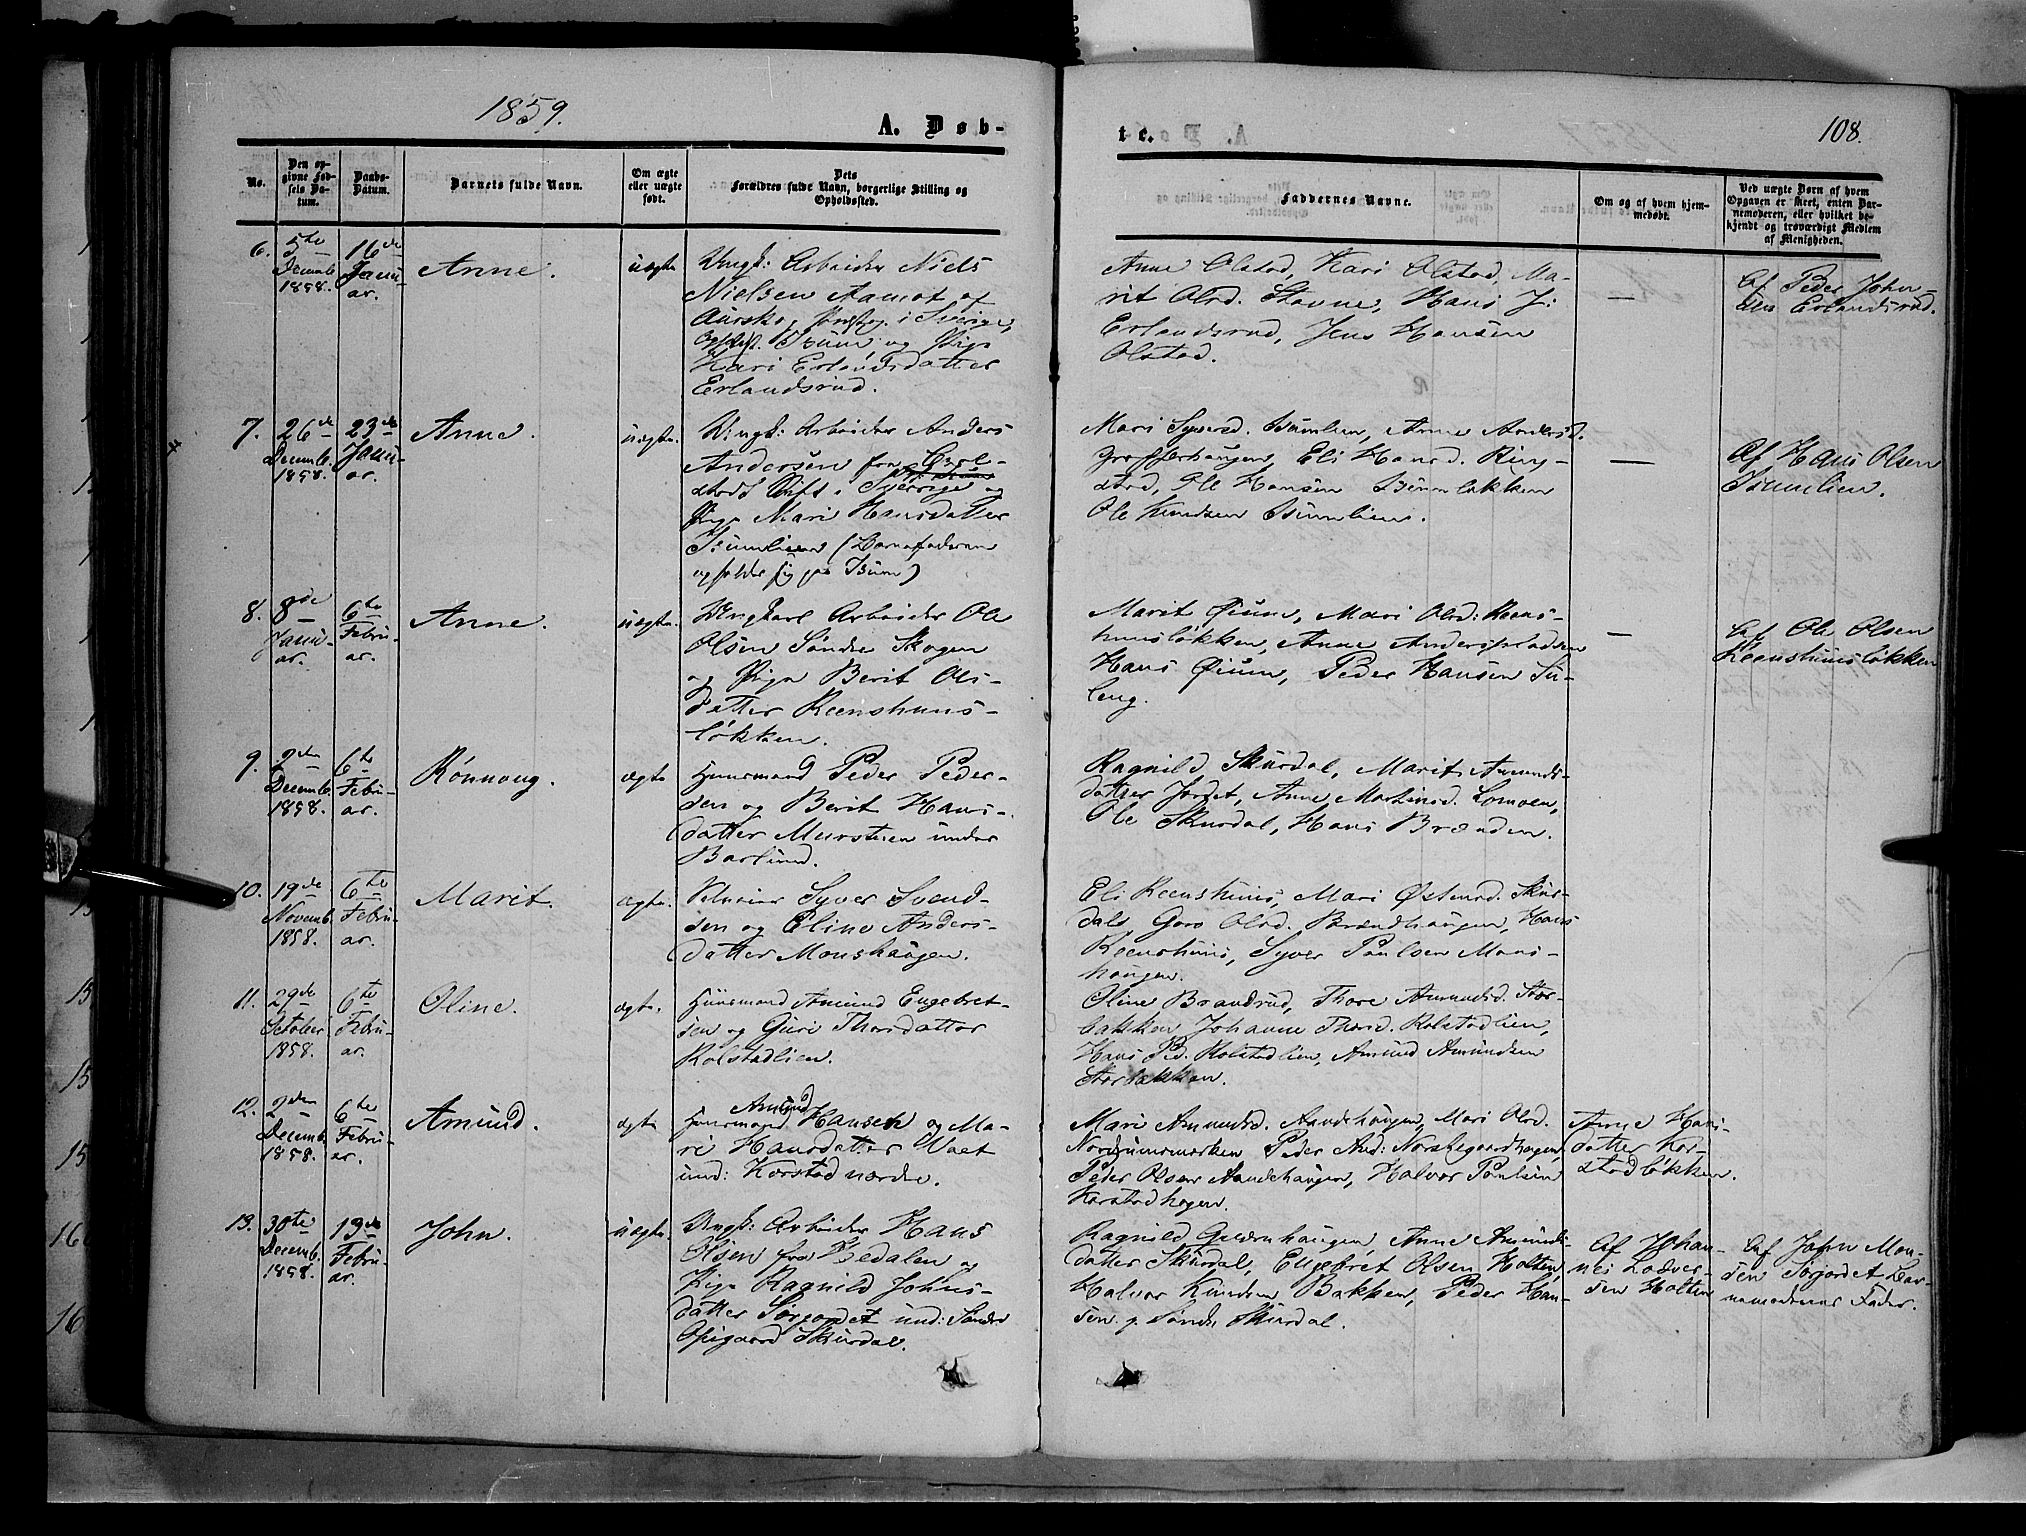 1859.
A. Døb-
te.
108.
No.
Den op-
givne Fød-
sels Da-
tum.
Daabs-
Datum.
Barnets fulde Navn.
Om ægte
eller uægte
født.
Dets
Forældres fulde Navn, borgerlige Stilling og
Opholdssted.
Faddernes Navne.
Om og af hvem hjem-
medøbt.
Ved uægte Børn af hvem
Opgaven er skeet, enten Bar-
nemoderen, eller hvilket be-
kjendt og troværdigt Medlem
af Menigheden.
6.
5te
Decemb.
1858.
16de
Janu-
ar.
Anne.
uægte
Ungk: Arbeider Niels
Nielsen Aamot af
i Sverige,
og Pige
Kari Erlandsdatter
Erlandsrud.
Anne Olstad, Kari Olstad, Ma-
rit Olsd. Stavne, Hans J:
Erlandsrud, Jens Hansen
Olstad.
—
Af Peder John-
sen Erlandsrud.
7.
26de
Decemb.
1858.
23de
Janu-
ar.
Anne.
uægte.
Ungk: Arbeider Anders
Andersen fra
Stift i Sverige og
Pige Mari Hansdatter
Isumlien (Barnefaderen
opholder sig paa Isum)
Mari Syversd. Isumlien, Anne Andersd.
Eli Hansd. Ring-
stad, Ole Hansen Isumløkken
Ole Knudsen Isumlien.
—
Af Hans Olsen
Isumlien.
8.
8de
Janu-
ar.
6te
Febru-
ar.
Anne.
uægte.
Ungkarl Arbeider Ole
Olsen Søndre Skogen
og Pige Berit Ols-
datter Reenshuus-
løkken.
Marit Øium, Mari Olsd: Reens-
huusløkken, Anne Anderspladsen
Hans Øium, Peder Hansen Su-
leng.
—
Af Ole Olsen
Reenshuusløkken
9.
2den
Decemb.
1858.
6te
Febru-
ar.
Rønnoug.
ægte
Huusmand Peder Peder-
sen og Berit Hans-
datter Mursteen under
Barlund.
Ragnild Skurdal, Marit Amunds-
datter Jordet, Anne Mortensd. Lomoen,
Ole Skurdal, Hans Brænden.
10.
19de
Novemb.
1858.
6te
Febru-
ar.
Marit.
ægte.
Selveier Syver Svend-
sen og Eline Anders-
datter Monshaugen.
Eli Reenshuus, Mari Østensd. Skur-
dal, Goro Olsd. Brændhaugen, Hans
Reenshuus, Syver Paulsen Mons-
haugen.
11.
29de
October
1858.
6te
Febru-
ar.
Oline.
ægte.
Huusmand Amund Engebret-
sen og Guri Thorsdatter
Kolstadlien.
Oline Brandrud, Thore Amundsd. Stor-
bakken, Johanne Thorsd. Kolstadlien,
Hans Pd. Kolstadlien, Amund Amundsen
Storbakken.
12.
2den
Decemb.
1858.
6te
Febru-
ar.
Amund.
ægte
Amund
Huusmand Hansen og Ma-
ri Hansdatter
und: Korstad nordre.
Mari Amundsd. Aandehaugen, Mari Olsd.
Peder And: Norstegaardhagen,
Peder Olsen Aandehaugen, Halvor Paulsen
Korstadhagen.
Anne Hans-
datter Kor-
stadløkken.
13.
30te
Decemb.
1858.
13de
Febru-
ar.
John.
uægte.
Ungk: Arbeider Hans
Olsen fra Hedalen og
Pige Ragnild Johns-
datter Sørjordet und: Søndre
Opigaard Skurdal.
Ragnild Qværnhaugen, Anne Amunds-
datter Skurdal, Engebret Olsen Holten,
Halvor Knudsen Bakken, Peder Han-
sen p. Søndre Skurdal.
Af Johan-
nes Lodver-
sen Holten
Af John Mon-
sen Sørjordet Bar-
nemoderens Fader.